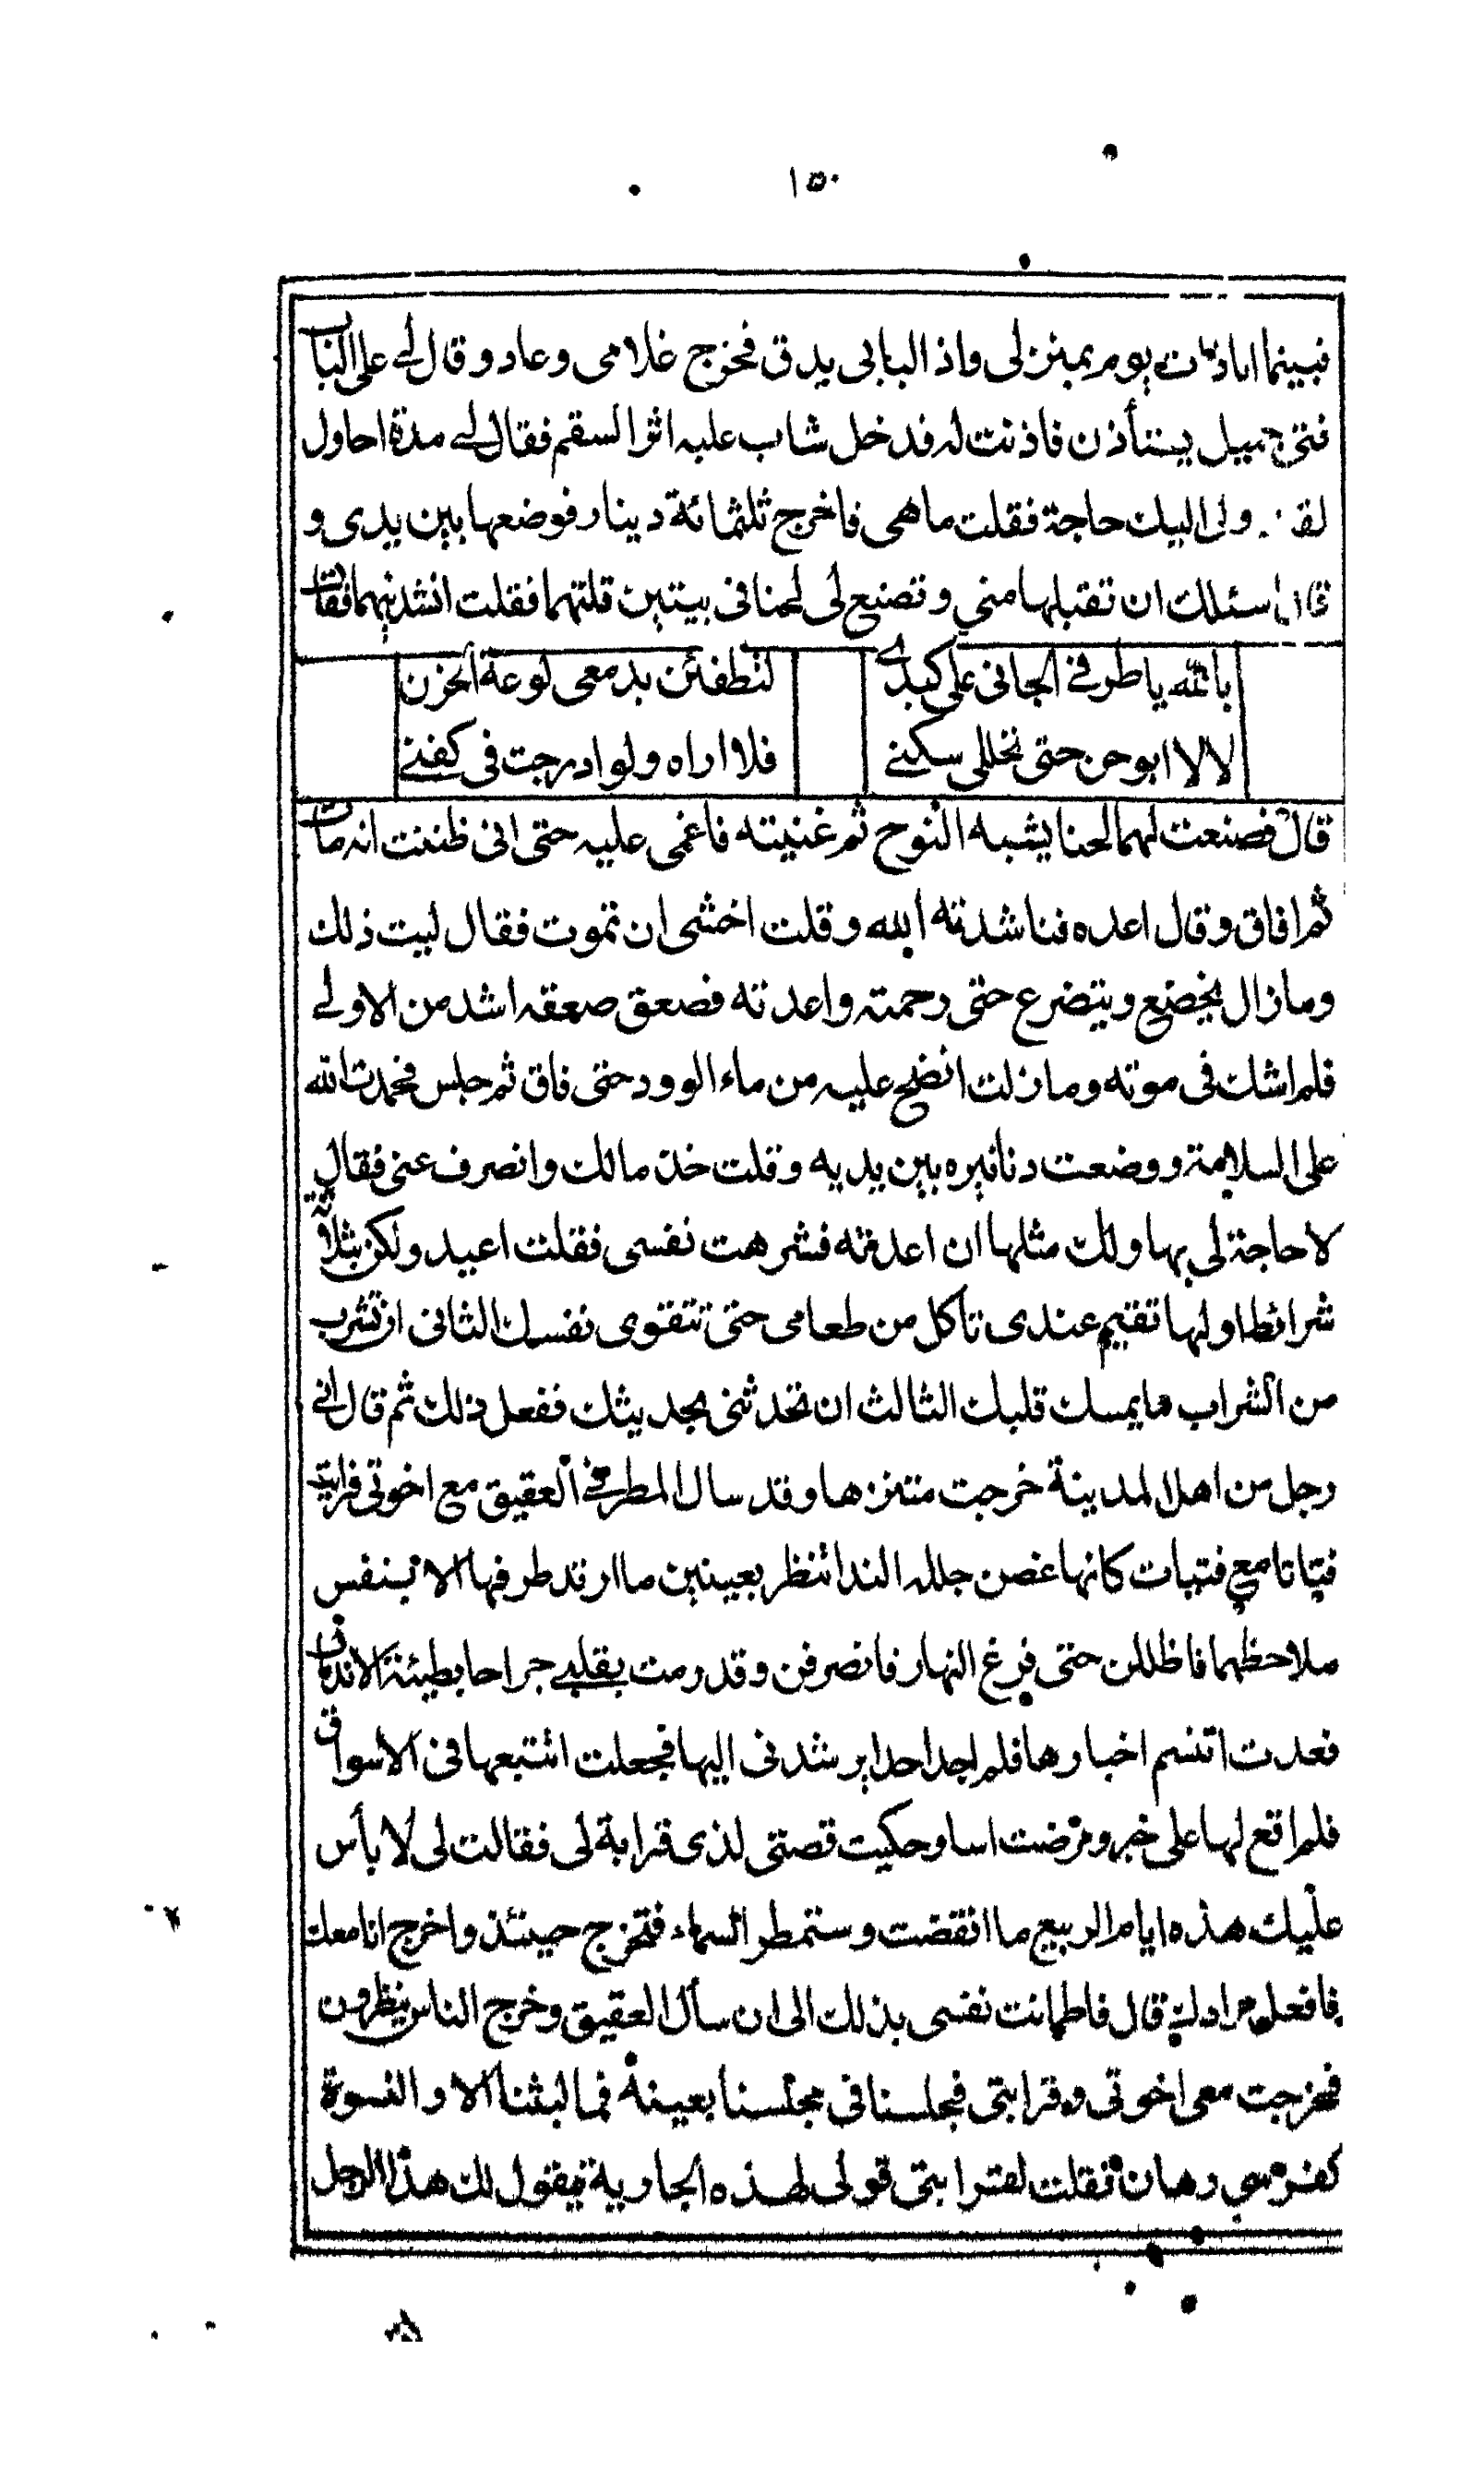 ١٥٠
فبينما انا ذات يوم بمنزلى واذ البابى يدق فخرج غلامى وعاد وقال لے على الباب
فتى جميل يستأذن فاذنت له فدخل شاب عليه اثر السقم فقال لے مدة احاول
ولى اليك حاجة فقلت ماهى فاخرج ثلثمائة دينار فوضعها بين يدى و
قال اسئلك ان تقبلها منى وتصنع لى لحنا فى بيتين قلتهما فقلت انشدنيهما فقال
بالله ياطرفے الجانى على كبدے لتطفئن بدمعى لوعة الحزن
لالا ابوحن حتى تخللى سكنے فلا اراه ولو ادرجت فى كفنے
قال فصنعت لهما لحنا يشبه النوح ثم غنيته فاغمى عليه حتى انى ظننت انه مات
ثم افاق وقال اعده فناشدته الله وقلت اخشى ان تموت فقال ليت ذلك
ومازال يخضع ويتضرع حتى رحمته واعدته فصعق صعقه اشد من الاولے
فلم اشك فى موته ومازلت انضح عليه من ماء الوود حتى فاق ثم جلس فحمدت الله
على السلامة ووضعت دنانيره بين يديه وقلت خذ مالك وانصرف عنى فقال
لاحاجة لى بها ولك مثلها ان اعدته فشرهت نفسى فقلت اعيد ولكن بثلاثة
شرائط اولها تقيم عندى تاكل من طعامى حتى تتقوى نفسك الثانى ان تشرب
من الشراب مايمسك قلبك الثالث ان تحدثنى بحديثك ففعل ذلك ثم قال انے
رجل من اهل المدينة خرجت متنزها وقد سال المطر فے العقيق مع اخوتى فرايت
فتاتا مع فتيات كانها غصن جلله الندا تنظر بعينين ما ارتد طرفها الا بنفس
ملاحظهما فاظللن حتى فرغ النهار فانصرفن وقد رمت بقلبے جراحا بطيئة الاندمال
فعدت اتنسم اخبارها فلم اجد احدا يرشدنى اليها فجعلت اتتبعها فى الاسواق
فلم اقع لها على خبر ومرضت اسا وحكيت قصتى لذى قرابة لى فقالت لى لا بأس
عليك هذه ايام الربيع ما انقضت وستمطر السماء فتخرج حينئذ واخرج انا معك
فافعل مرادك قال فاطمانت نفسى بذلك الى ان سأل العقيق وخرج الناس ينظرون
فخرجت مع اخوتى وقرابتى فجلسنا فى مجلسنا بعينه فما لبثنا الا والنسوة
كفرسى رهان فقلت لقرابتى قولى لهذه الجارية يقول لك هذا الرجل